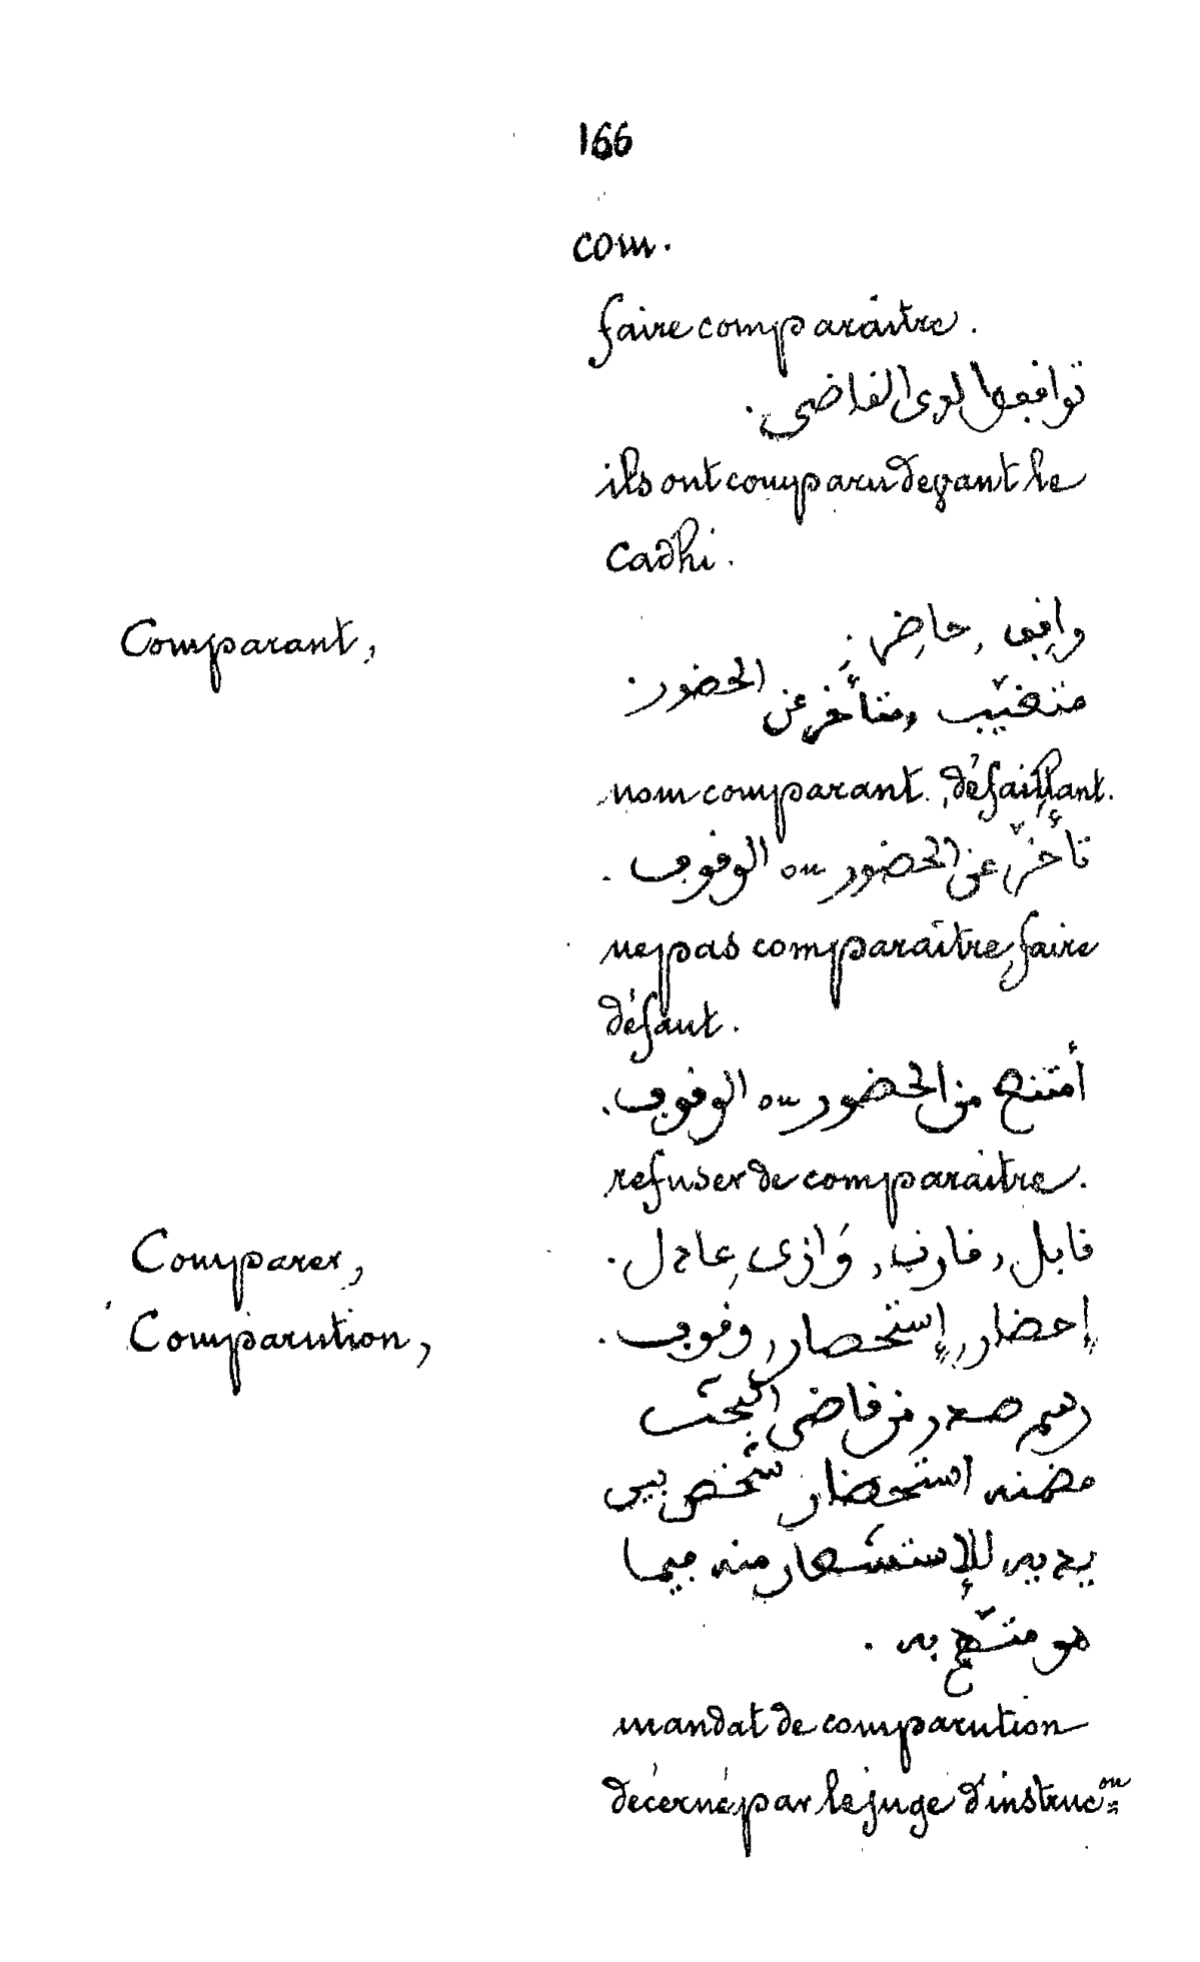 166
com.
faire comparaître.
توافعوا لدى القاضي.
ils ont comparu devant le
Cadhi.
Comparant,
واقف, حاضر.
متغيّب ومتأخّر عن الحضور.
nom comparant, défaillant.
تأخّر عن الحضور ou الوقوف.
ne pas comparaître, faire
défaut.
أمتنع من الحضور ou الوقوف.
refuser de comparaitre.
Comparer,
قابل, قارن, وَازى, عادل.
Comparution,
إحضار, إستحضار, وقوف.
رسم صدر من قاضي البحث
مضمنه استحضار شخص بين
يديه للإستشعار منه فيما
هو متّهم به.
mandat de comparution
décerné par le juge d'instruc.on